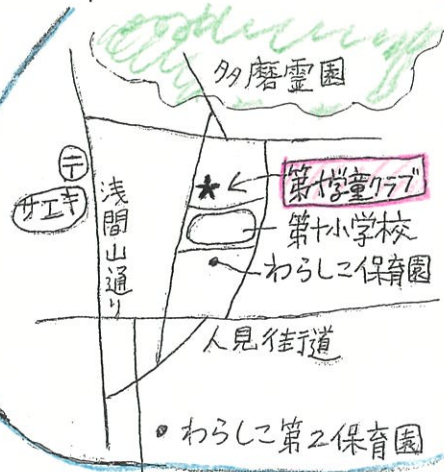 多磨霊園
〒
サエキ
浅間山通り
第十学童クラブ
第十小学校
わらしこ保育園
人見街道
わらしこ第2保育園